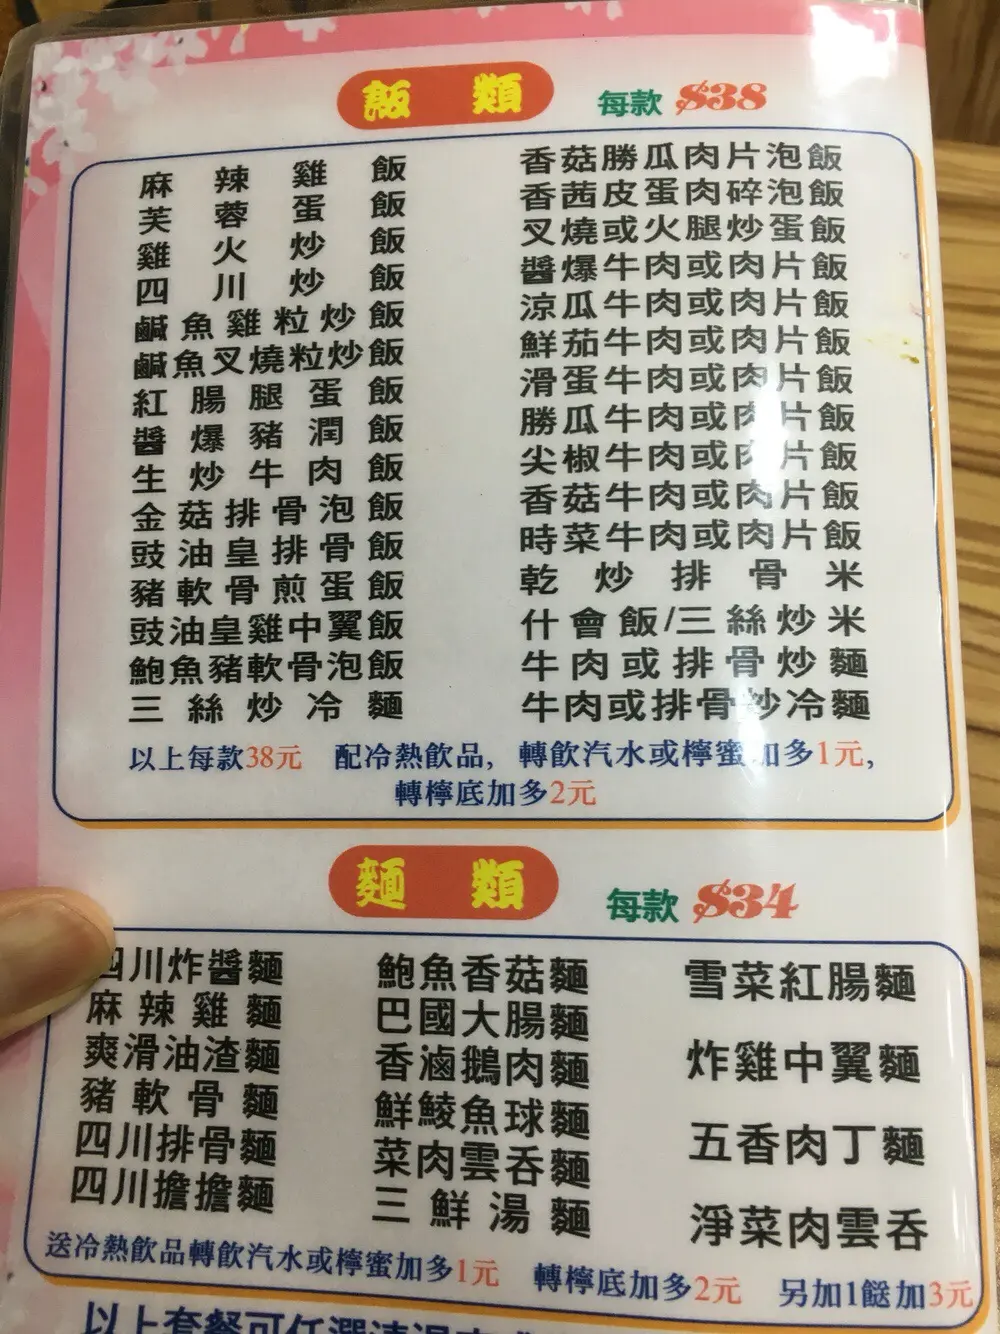 飯類 每款 $38
麻辣雞飯
芙蓉蛋飯
雞火炒飯
四川炒飯
鹹魚雞粒炒飯
鹹魚叉燒粒炒飯
紅腸腿蛋飯
醬爆豬潤飯
生炒牛肉飯
金菇排骨泡飯
豉油皇排骨飯
豬軟骨煎蛋飯
豉油皇雞中翼飯
鮑魚豬軟骨泡飯
三絲炒冷麵
香菇勝瓜肉片泡飯
香茜皮蛋肉碎泡飯
叉燒或火腿炒蛋飯
醬爆牛肉或肉片飯
涼瓜牛肉或肉片飯
鮮茄牛肉或肉片飯
滑蛋牛肉或肉片飯
勝瓜牛肉或肉片飯
尖椒牛肉或肉片飯
香菇牛肉或肉片飯
時菜牛肉或肉片飯
乾炒排骨米
什會飯/三絲炒米
牛肉或排骨炒麵
牛肉或排骨炒冷麵
以上每款38元 配冷熱飲品, 轉飲汽水或檸蜜加多1元,
轉檸底加多2元
麵類 每款 $34
四川炸醬麵
麻辣雞麵
爽滑油渣麵
豬軟骨麵
四川排骨麵
四川擔擔麵
鮑魚香菇麵
巴國大腸麵
香滷鵝肉麵
鮮鯪魚球麵
菜肉雲吞麵
三鮮湯麵
雪菜紅腸麵
炸雞中翼麵
五香肉丁麵
淨菜肉雲吞
送冷熱飲品轉飲汽水或檸蜜加多1元 轉檸底加多2元 另加1餸加3元
以上套餐可任選